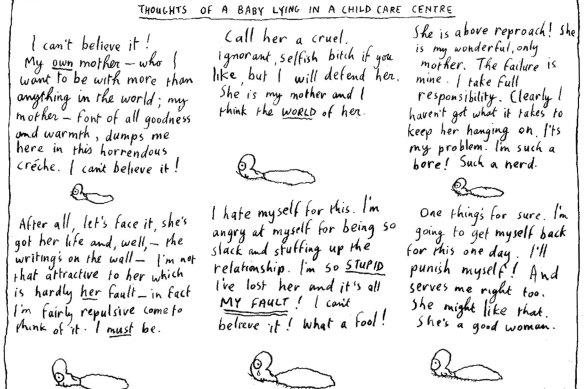 THOUGHTS OF A BABY LYING IN A CHILD CARE CENTRE
I can't believe it!
My own mother – who I
want to be with more than
anything in the world; my
mother – font of all goodness
and warmth, dumps me
here in this horrendous
créche. I can't believe it!
Call her a cruel,
ignorant, selfish bitch if you
like, but I will defend her.
She is my mother and I
think the WORLD of her.
She is above reproach! She
is my wonderful, only
mother. The failure is
mine. I take full
responsibility. Clearly I
haven't got what it takes to
keep her hanging on. It's
my problem. I'm such a
bore! Such a nerd.
After all, let's face it, she's
got her life and, well, – the
writing's on the wall – I'm not
that attractive to her which
is hardly her fault – in fact
I'm fairly repulsive come to
think of it. I must be.
I hate myself for this. I'm
angry at myself for being so
slack and stuffing up the
relationship. I'm so STUPID
I've lost her and it's all
MY FAULT! I can't
believe it! What a fool!
One thing's for sure. I'm
going to get myself back
for this one day. I'll
punish myself! And
serves me right too.
She might like that.
She's a good woman.